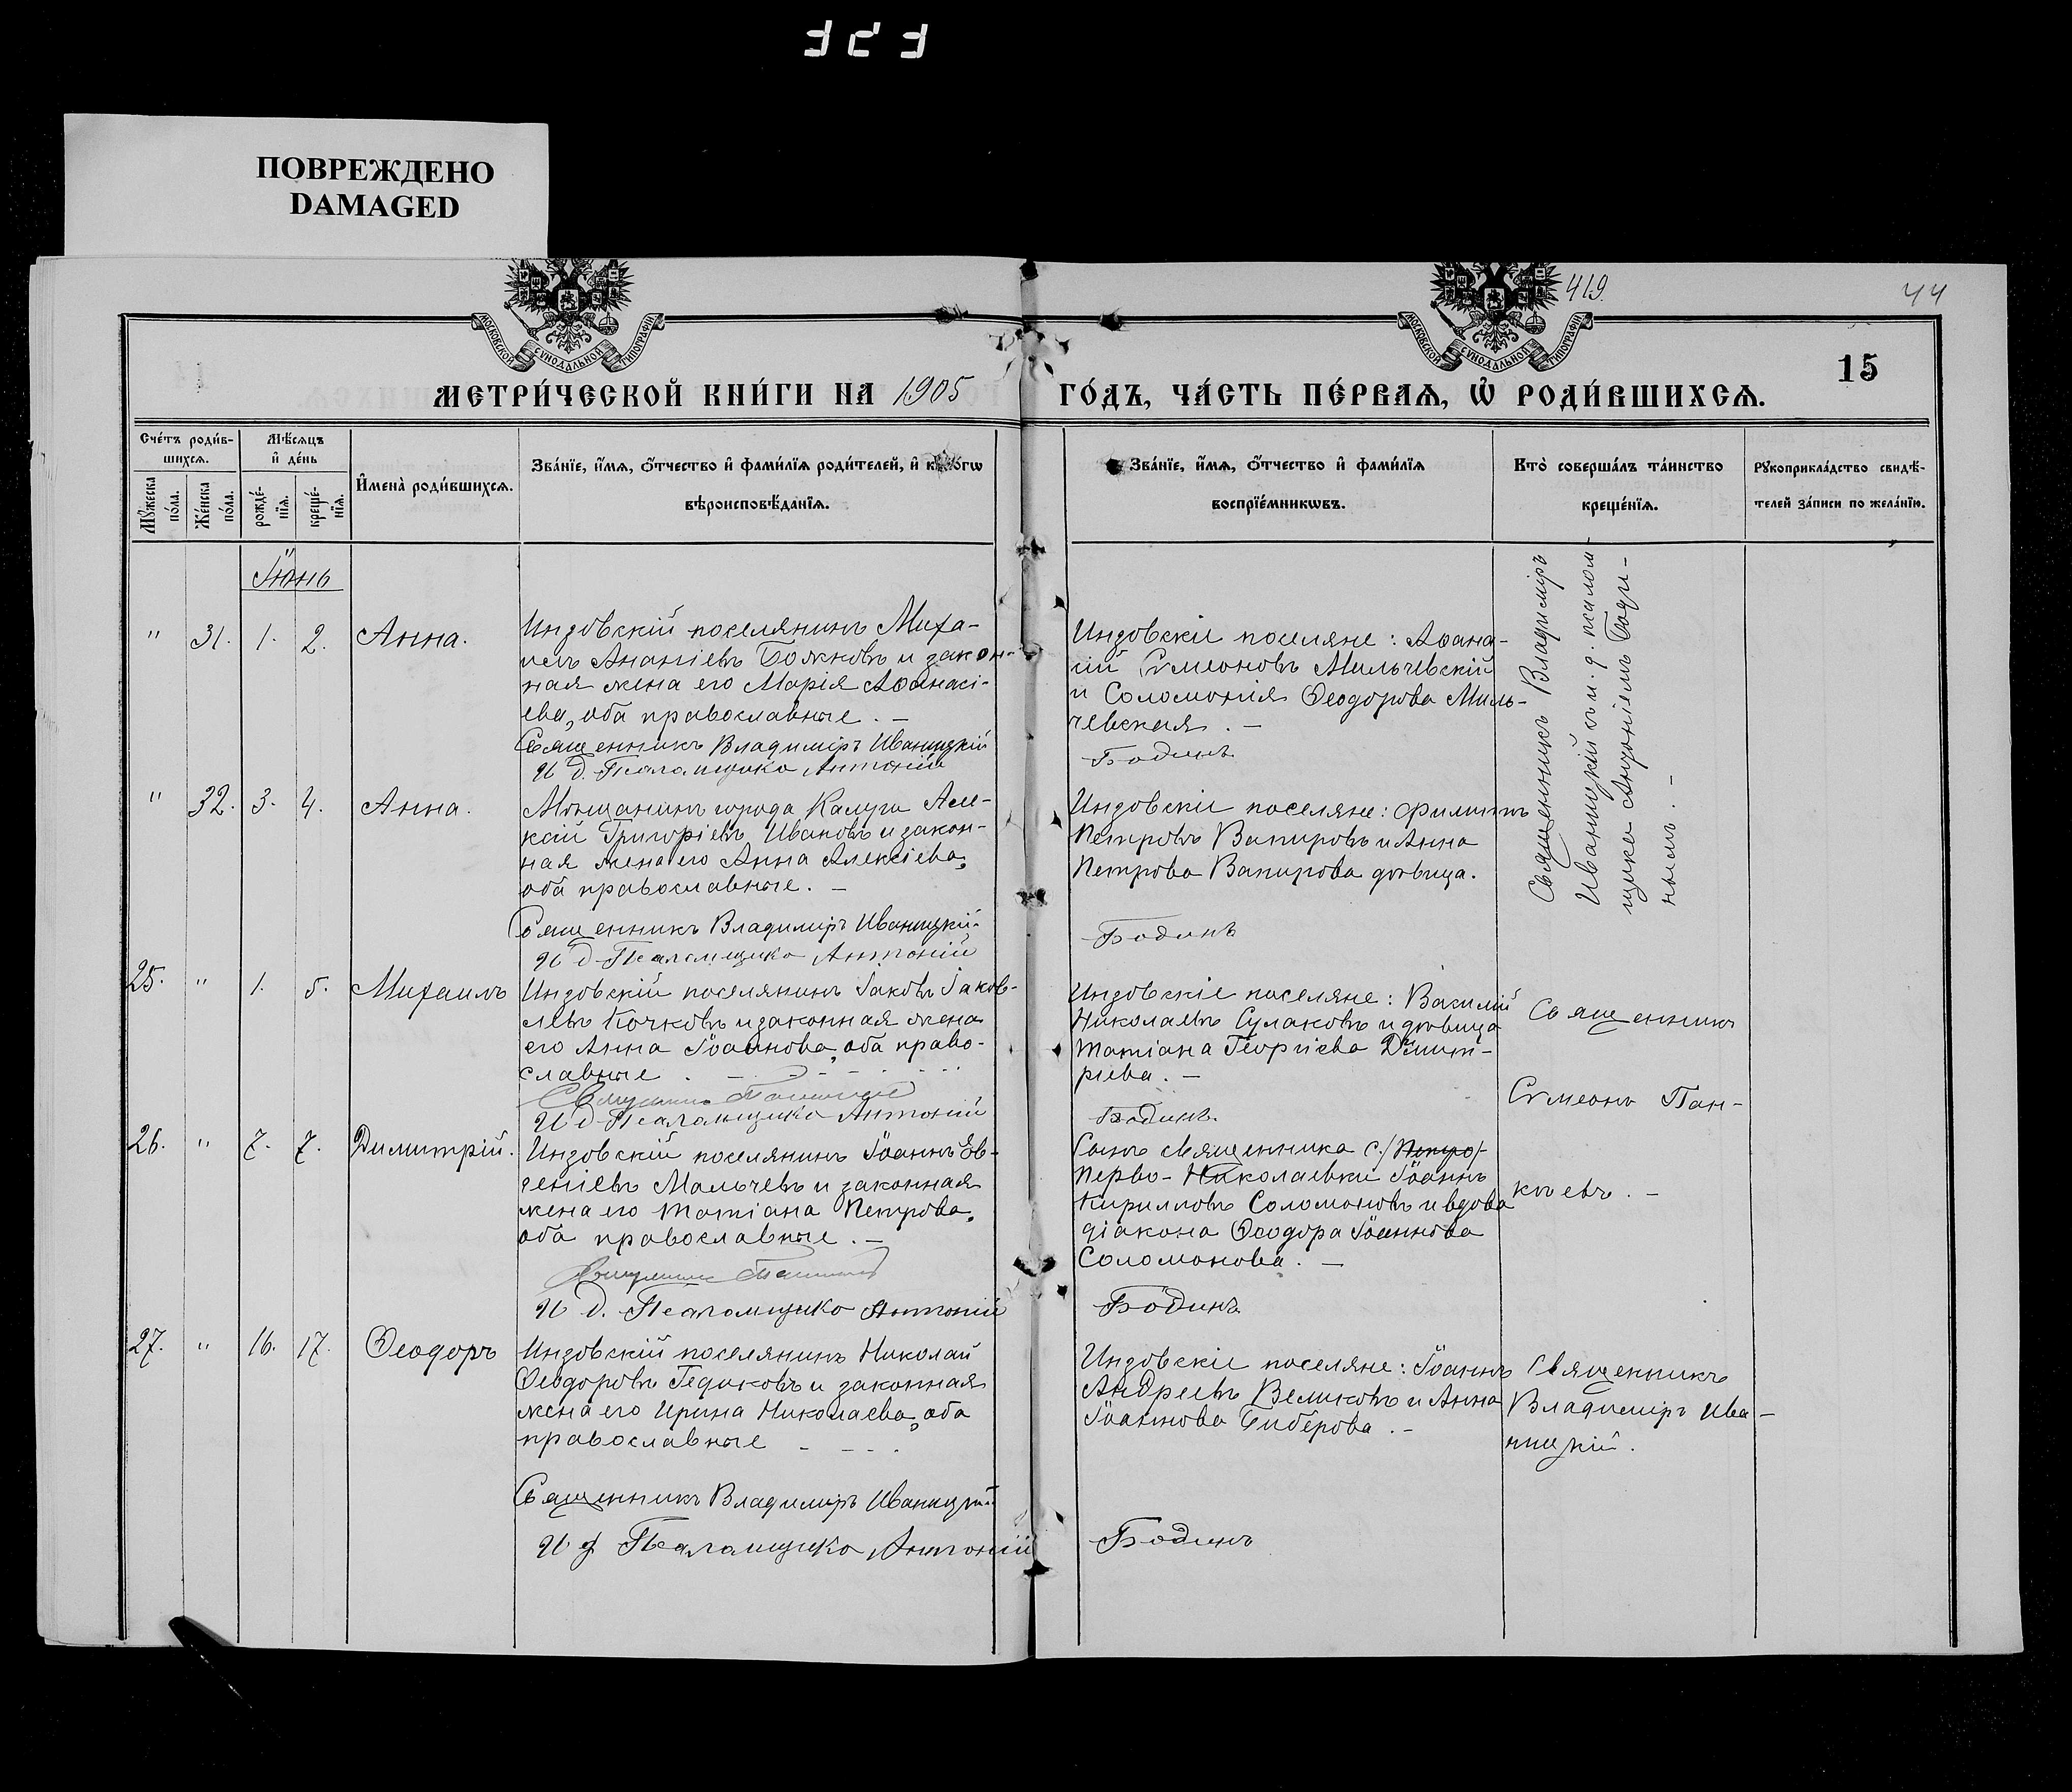 ПОВРЕЖДЕНО
DAMAGED
419.
44
МОСКОВСКОЙ СѴНОДАЛЬНОЙ ТИПОГРАФІИ
МОСКОВСКОЙ СѴНОДАЛЬНОЙ ТИПОГРАФІИ
15
МЕТРИ́ЧЕСКОЙ КНИ́ГИ НА 1905
ГО́ДЪ, ЧА́СТЬ ПЕ́РВАѦ, Ѡ҆ РОДИ́ВШИХСѦ.
Сче́тъ роди́в-
шихсѧ.
Мѣ́сѧцъ
и҆ де́нь
Мꙋ́жеска по́ла.
Же́нска по́ла.
рожде́-нїѧ.
креще́-нїѧ.
И҆мена̀ роди́вшихсѧ.
Зва́нїе, и҆́мѧ, ѻ҆́тчество и҆ фами́лїѧ роди́телей, и҆
вѣроисповѣ́данїѧ.
Зва́нїе, и҆́мѧ, ѻ҆́тчество и҆ фами́лїѧ
воспрїе́мникѡвъ.
Кто̀ соверша́лъ та́инство
креще́нїѧ.
Рꙋкоприкла́дство свидѣ́-
телей за́писи по жела́нїю.
Іюнь
" 31. 1. 2. Анна.
Индовскій поселянинъ Миха-
илъ Ананіевъ Божковъ и закон-
ная жена его Марія Аѳанасі-
ева, оба православные. —
Священникъ Владиміръ Иваницкій
И д. Псаломщика Антоній
Индовскіе поселяне: Аѳана-
сій Сѵмеоновъ Мильчевскій
и Соломонія Ѳеодорова Миль-
чевская. —
Бодинъ
Священникъ Владиміръ
Иваницкій съ и. д. псалом-
щика Антоніемъ Боди-
нымъ. —
" 32. 3. 4. Анна.
Мѣщанинъ города Калуги Але-
ксій Григоріевъ Ивановъ и закон-
ная жена его Анна Алексіева,
оба православные. —
Священникъ Владиміръ Иваницкій
И д Псаломщика Антоній
Индовскіе поселяне: Филиппъ
Петровъ Вапировъ и Анна
Петрова Вапирова дѣвица.
Бодинъ
25. " 1. 5. Михаилъ
Индовскій поселянинъ Іаковъ Іаков-
левъ Кочковъ и законная жена
его Анна Іоаннова, оба право-
славные. —
Священникъ
И д Псаломщика Антоній
Индовскіе поселяне: Василій
Николаевъ Сулаковъ и дѣвица
Татіана Георгіева Димит-
ріева. —
Бодинъ.
Священникъ
Сѵмеонъ Пан-
26. " 7. 7. Димитрій.
Индовскій поселянинъ Іоаннъ Ев-
геніевъ Мальчевъ и законная
жена его Татіана Петрова,
оба православные. —
Священникъ
И д. Псаломщика Антоній
Сынъ священника с. /Петро/-
Перво-Николаевки Іоаннъ
Кирилловъ Соломоновъ и вдова
діакона Ѳеодора Іоаннова
Соломонова. —
Бодинъ
къевъ. —
27. " 16. 17. Ѳеодоръ
Индовскій поселянинъ Николай
Ѳеодоровъ Гедиковъ и законная
жена его Ирина Николаева, оба
православные
Священникъ Владиміръ Иваницкій
И д Псаломщика Антоній
Индовскіе поселяне: Іоаннъ
Андреевъ Великовъ и Анна
Іоаннова Биберова. —
Бодинъ
Священникъ
Владиміръ Ива-
ницкій.